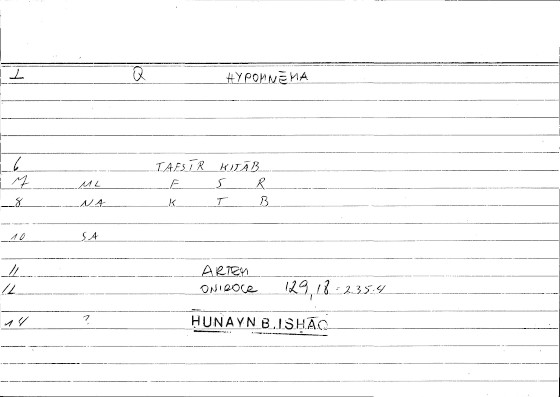 1 Q HYPOMNĒMA
6 TAFSĪR KITĀB
7 ML F S R
8 NA K T B
10 SA
11 ARTEM
12 ONIROCR 129,18 = 235.4
14 ? HUNAYN B. ISHĀQ